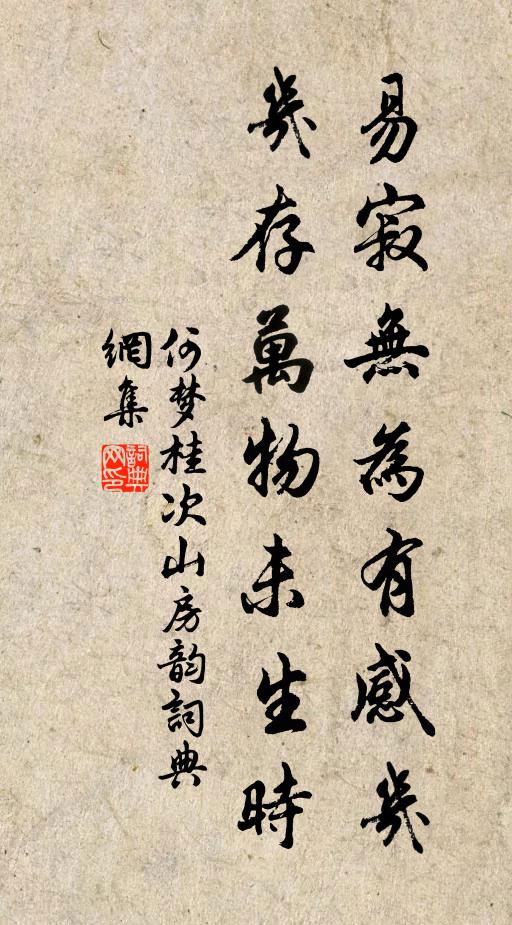 易寂無為有感幾
幾存萬物未生時
何梦桂次山房韵詞典
網集
詞典网印